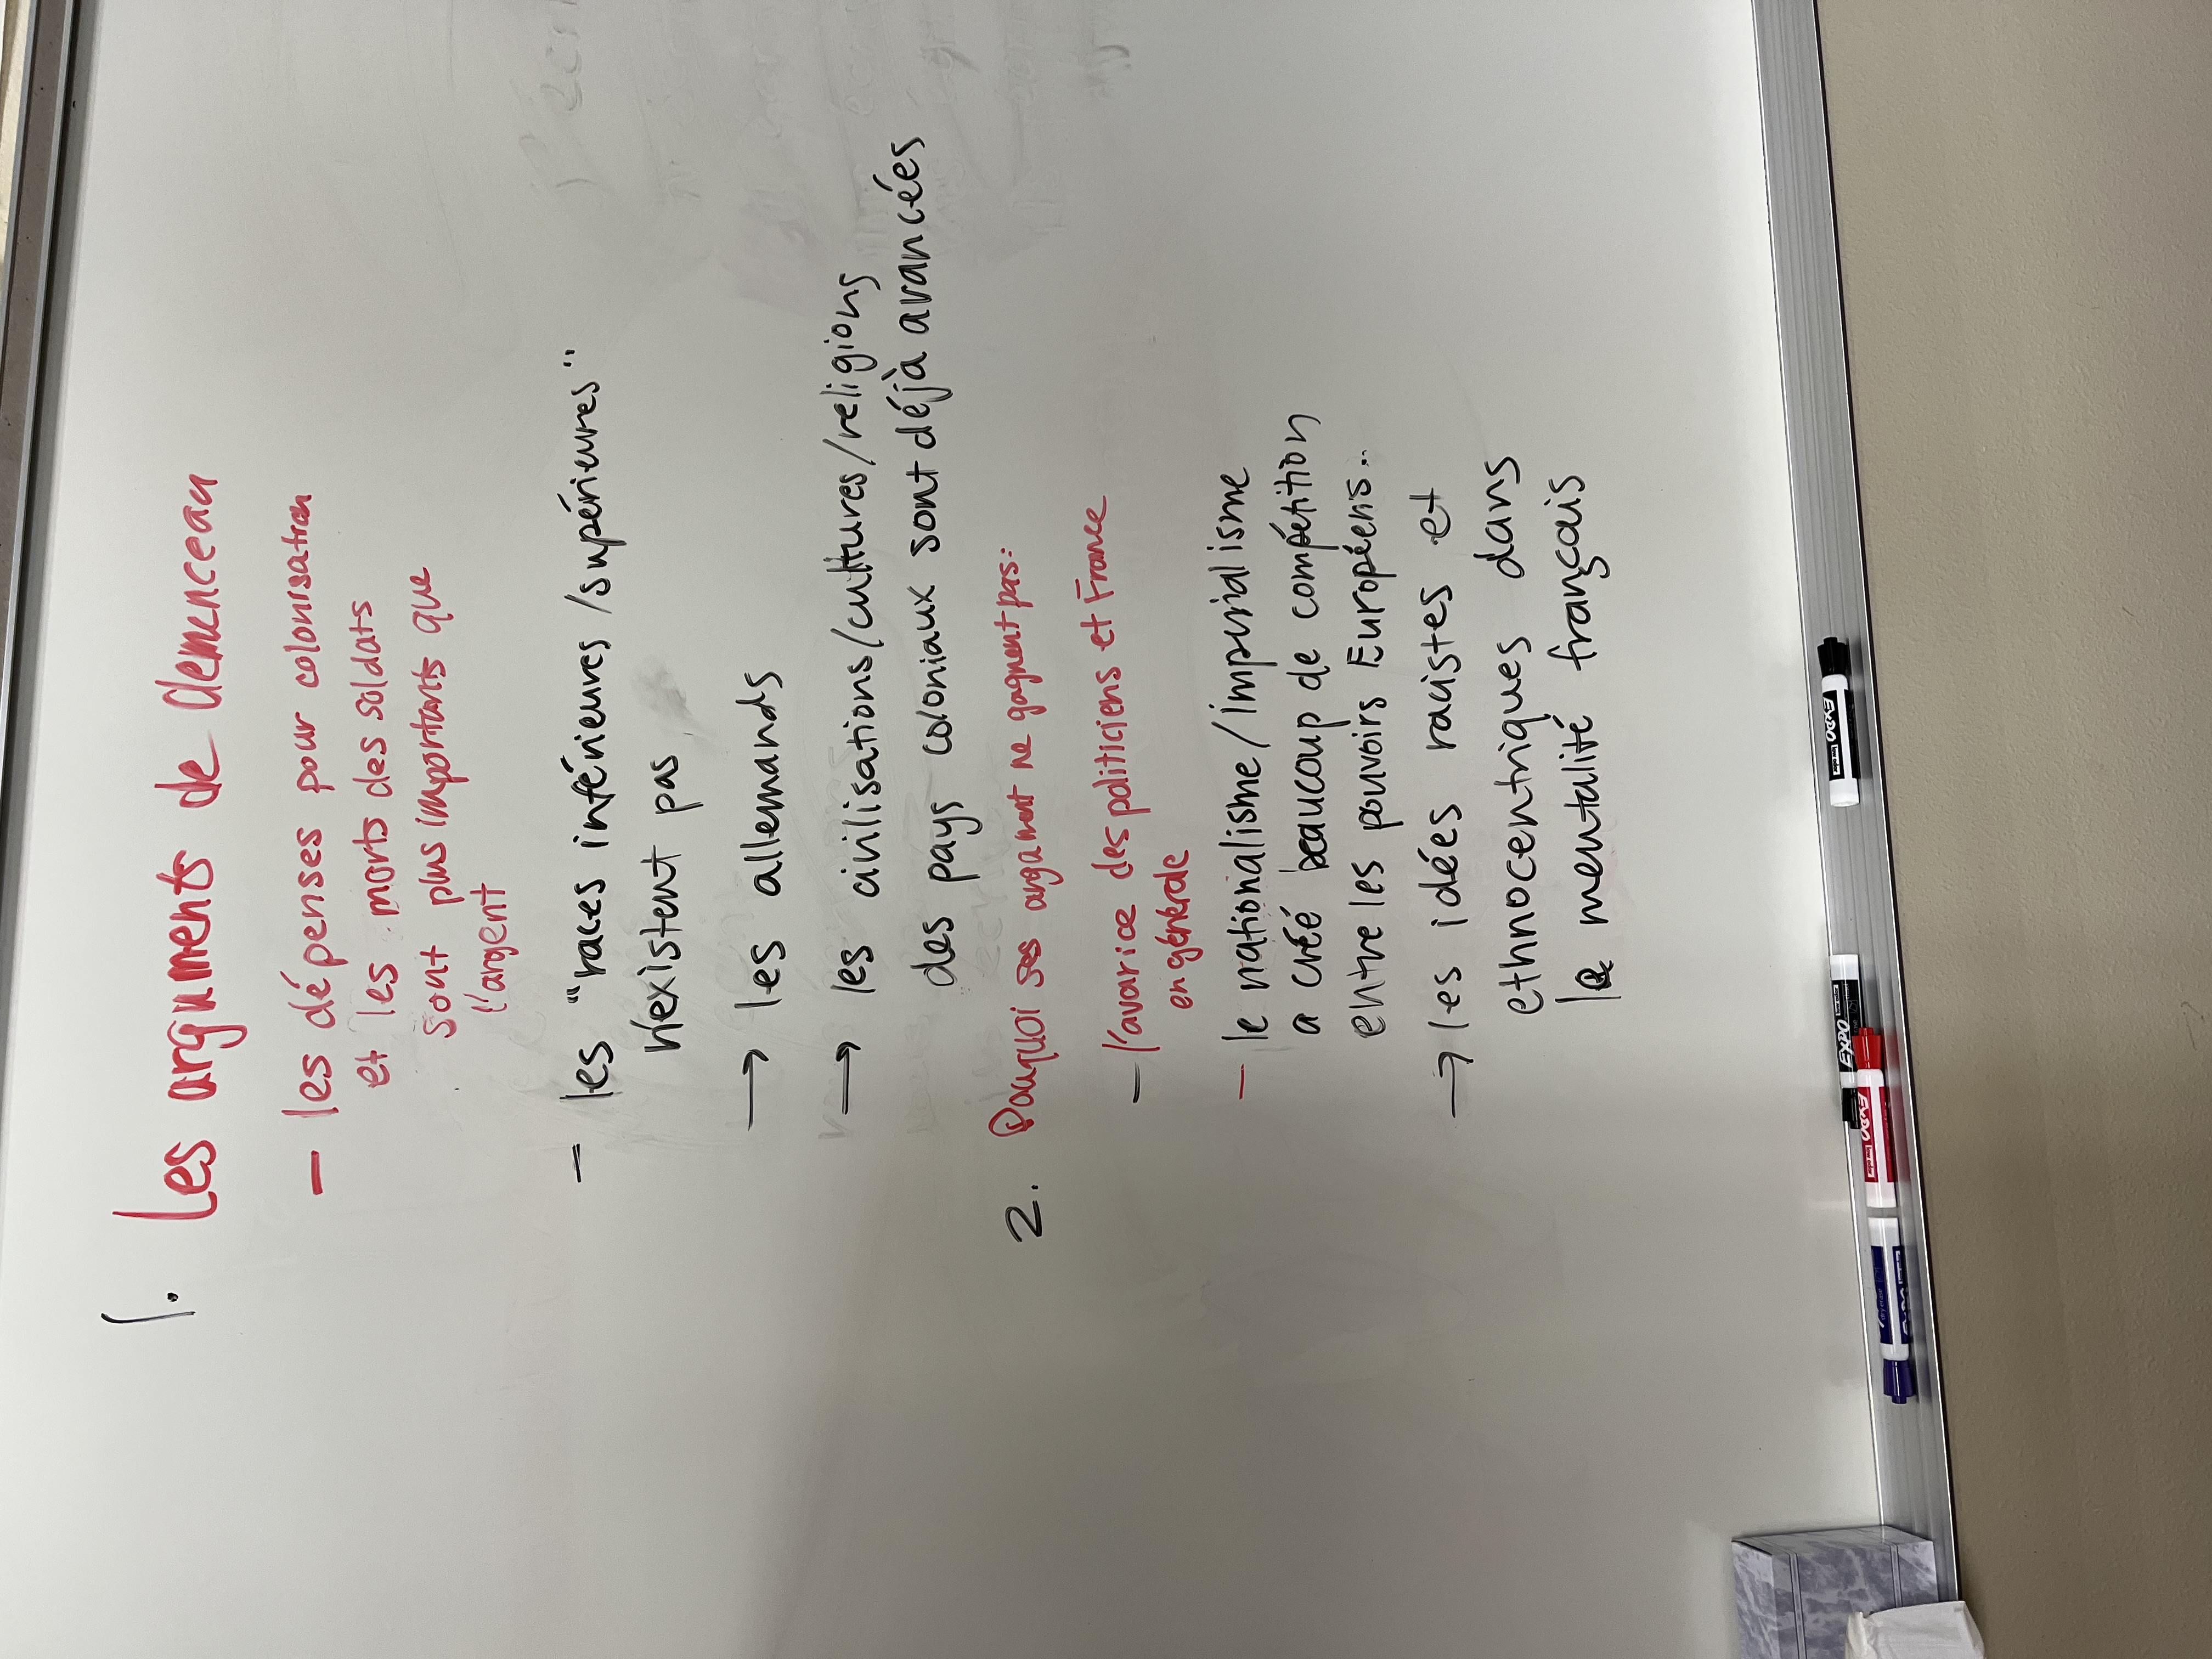 1. Les arguments de Clemenceau
— les dépenses pour colonisation
et les morts des soldats
sont plus importants que
l'argent
– les "races inférieures/supérieures"
n'existent pas
→ les allemands
→ les civilisations/cultures/religions
des pays coloniaux sont déjà avancées
2. Pourquoi ses argument ne gagnent pas:
– l'avarice des politiciens et France
en générale
– le nationalisme/imperialisme
a créé beaucoup de compétition
entre les pouvoirs Européens..
→ les idées racistes et
ethnocentriques dans
le mentalité français
EXPO low odor
EXPO low odor
EXPO low odor
dry erase
EXPO